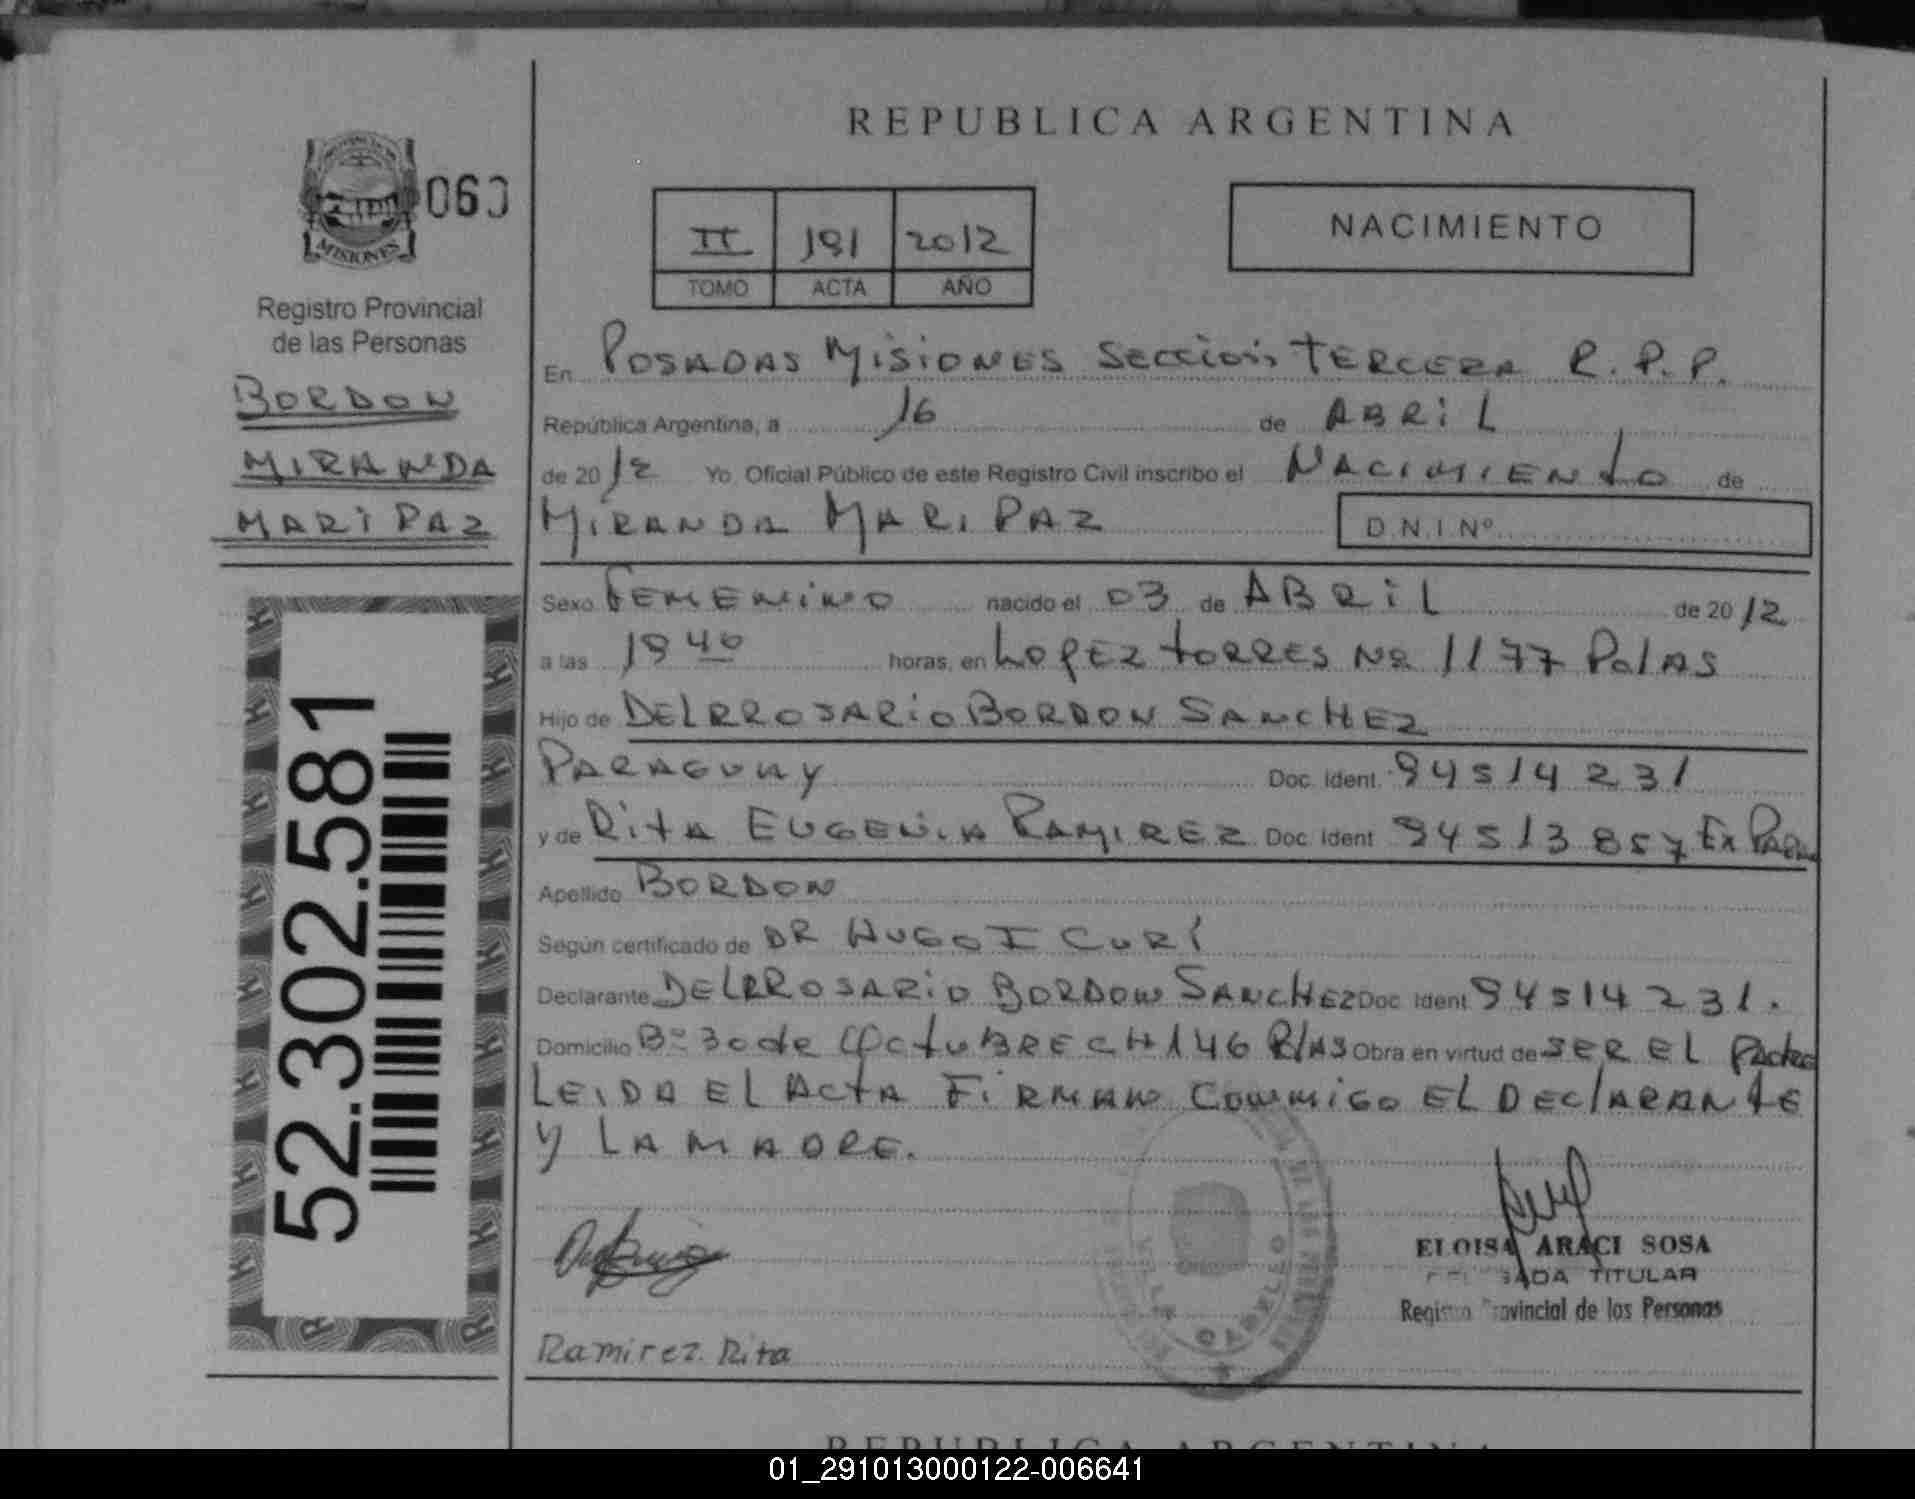 REPUBLICA ARGENTINA
060
MISIONES
Registro Provincial
de las Personas
BORDON
MIRANDA
MARI PAZ
52.302.581
II 191 2012
TOMO ACTA AÑO
NACIMIENTO
En POSADAS MISIONES SECCION TERCERA R.P.P.
República Argentina, a 16 de ABRIL
de 2012 Yo Oficial Público de este Registro Civil inscribo el NACIMIENTO de
MIRANDA MARI PAZ D.N.I.Nº
Sexo FEMENINO nacido el 03 de ABRIL de 2012
a las 1940 horas, en LOPEZ TORRES Nº 1177 PdAS
Hijo de DELRROSARIO BORDON SANCHEZ
PARAGUAY Doc. Ident. 94514231
y de RITA EUGENIA RAMIREZ Doc. Ident 94513857 Ex
Apellido BORDON
Según certificado de DR HUGO I CURI
Declarante DELRROSARIO BORDON SANCHEZ Doc. Ident 94514231.
Domicilio Bº 30 de OCTUBRE CH 146 PdAS Obra en virtud de SER EL Padre
LEIDA EL ACTA FIRMAN CONMIGO EL DEClARANTE
Y LA MADRE.
ELOISA ARACI SOSA
TITULAR
Registro Provincial de las Personas
VILLA CABELLO
Ramirez Rita
REPUBLICA ARGENTINA
01_291013000122-006641